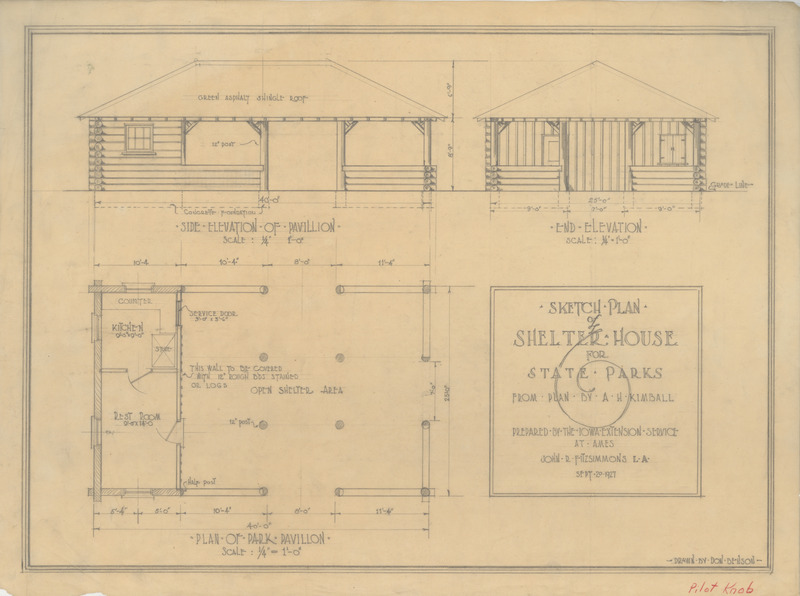 GREEN ASPHALT SHINGLE ROOF
12" POST
8'-0"
40'-0"
CONCRETE FOUNDATION
· SIDE · ELEVATION · OF · PAVILLION ·
SCALE : ¼" 1'-0"
GRADE LINE
25'-0"
9'-0" 7'-0" 9'-0"
· END · ELEVATION ·
SCALE : ¼" = 1'-0"
10'-4 10'-4" 8'-0" 11'-4"
COUNTER
KITCHEN
STOVE
SERVICE DOOR
THIS WALL TO BE COVERED
WITH 12" ROUGH BDS. STAINED
OR LOGS
OPEN SHELTER AREA
REST ROOM
12" post
Half post
5'-4" 5'-0" 10'-4" 8'-0" 11'-4"
40'-0"
· PLAN · OF · PARK · PAVILLON ·
SCALE : ¼" = 1'-0"
· SKETCH · PLAN ·
OF
SHELTER · HOUSE
FOR
STATE · PARKS
FROM · PLAN · BY · A · H · KIMBALL
PREPARED · BY · THE · IOWA · EXTENSION · SERVICE
AT · AMES
JOHN · R · FITZSIMMONS L·A·
SEPT · 20 · 1927
DRAWN · BY · DON · BENSON
Pilot Knob